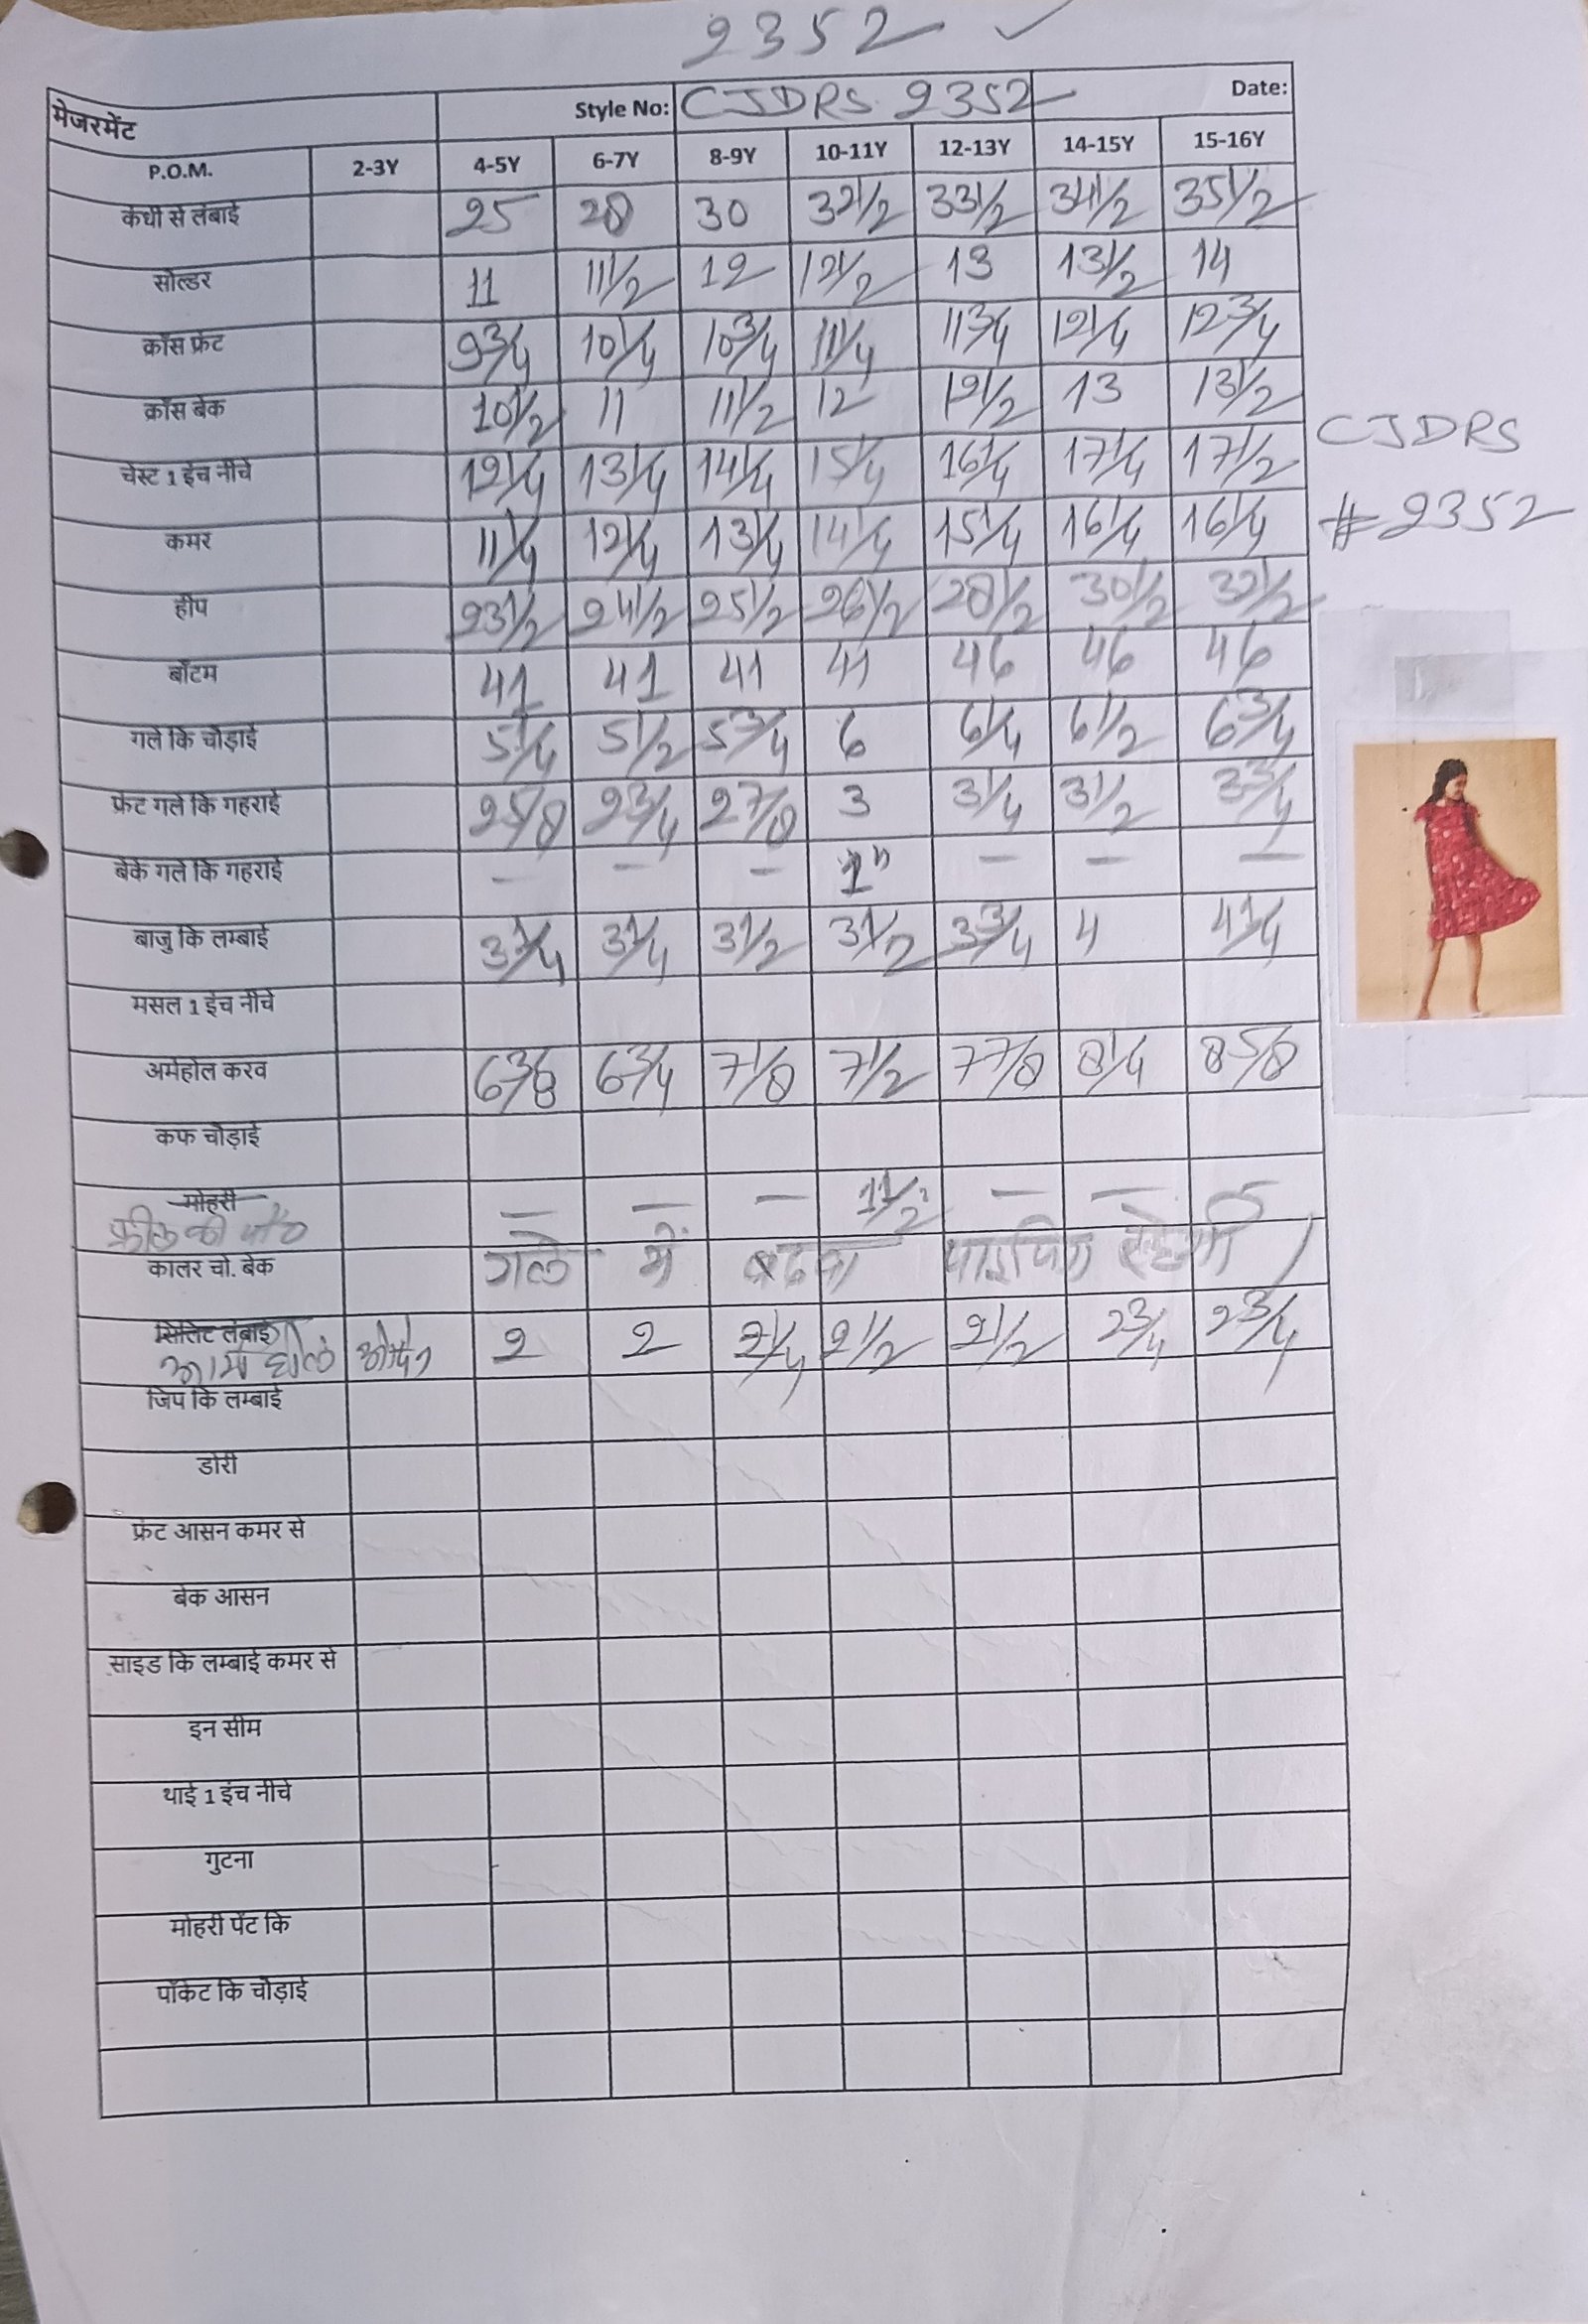 2352 ✓
मेजरमेंट Style No: CJDRS 2352 Date:
P.O.M. 2-3Y 4-5Y 6-7Y 8-9Y 10-11Y 12-13Y 14-15Y 15-16Y
कंधी से लंबाई 25 28 30 32 1/2 33 1/2 34 1/2 35 1/2
सोल्डर 11 11 1/2 12 12 1/2 13 13 1/2 14
क्रॉस फ्रंट 9 3/4 10 1/4 10 3/4 11 1/4 11 3/4 12 1/4 12 3/4
क्रॉस बेक 10 1/2 11 11 1/2 12 12 1/2 13 13 1/2
चेस्ट 1 इंच नीचे 12 1/4 13 1/4 14 1/4 15 1/4 16 1/4 17 1/4 17 1/2
CJDRS
कमर 11 1/4 12 1/4 13 1/4 14 1/4 15 1/4 16 1/4 16 1/4
#2352
हीप 23 1/2 24 1/2 25 1/2 26 1/2 28 1/2 30 1/2 32 1/2
बॉटम 41 41 41 41 46 46 46
गले कि चोड़ाई 5 1/4 5 1/2 5 3/4 6 6 1/4 6 1/2 6 3/4
फ्रंट गले कि गहराई 2 5/8 2 3/4 2 7/8 3 3 1/4 3 1/2 3 3/4
बेक गले कि गहराई — — — 1" — — —
बाजु कि लम्बाई 3 1/4 3 1/4 3 1/2 3 1/2 3 3/4 4 4 1/4
मसल 1 इंच नीचे
अर्महोल करव 6 3/8 6 3/4 7 1/8 7 1/2 7 7/8 8 1/4 8 5/8
कफ चोड़ाई
मोहरी — — — 1 1/2 — — —
कालर चो. बेक गले में पाइपिन
सिलिट लंबाई 2 2 2 1/4 2 1/2 2 1/2 2 3/4 2 3/4
आर्म होल ओपन
जिप कि लम्बाई
डोरी
फ्रंट आसन कमर से
बेक आसन
साइड कि लम्बाई कमर से
इन सीम
थाई 1 इंच नीचे
गुटना
मोहरी पेंट कि
पॉकेट कि चोड़ाई